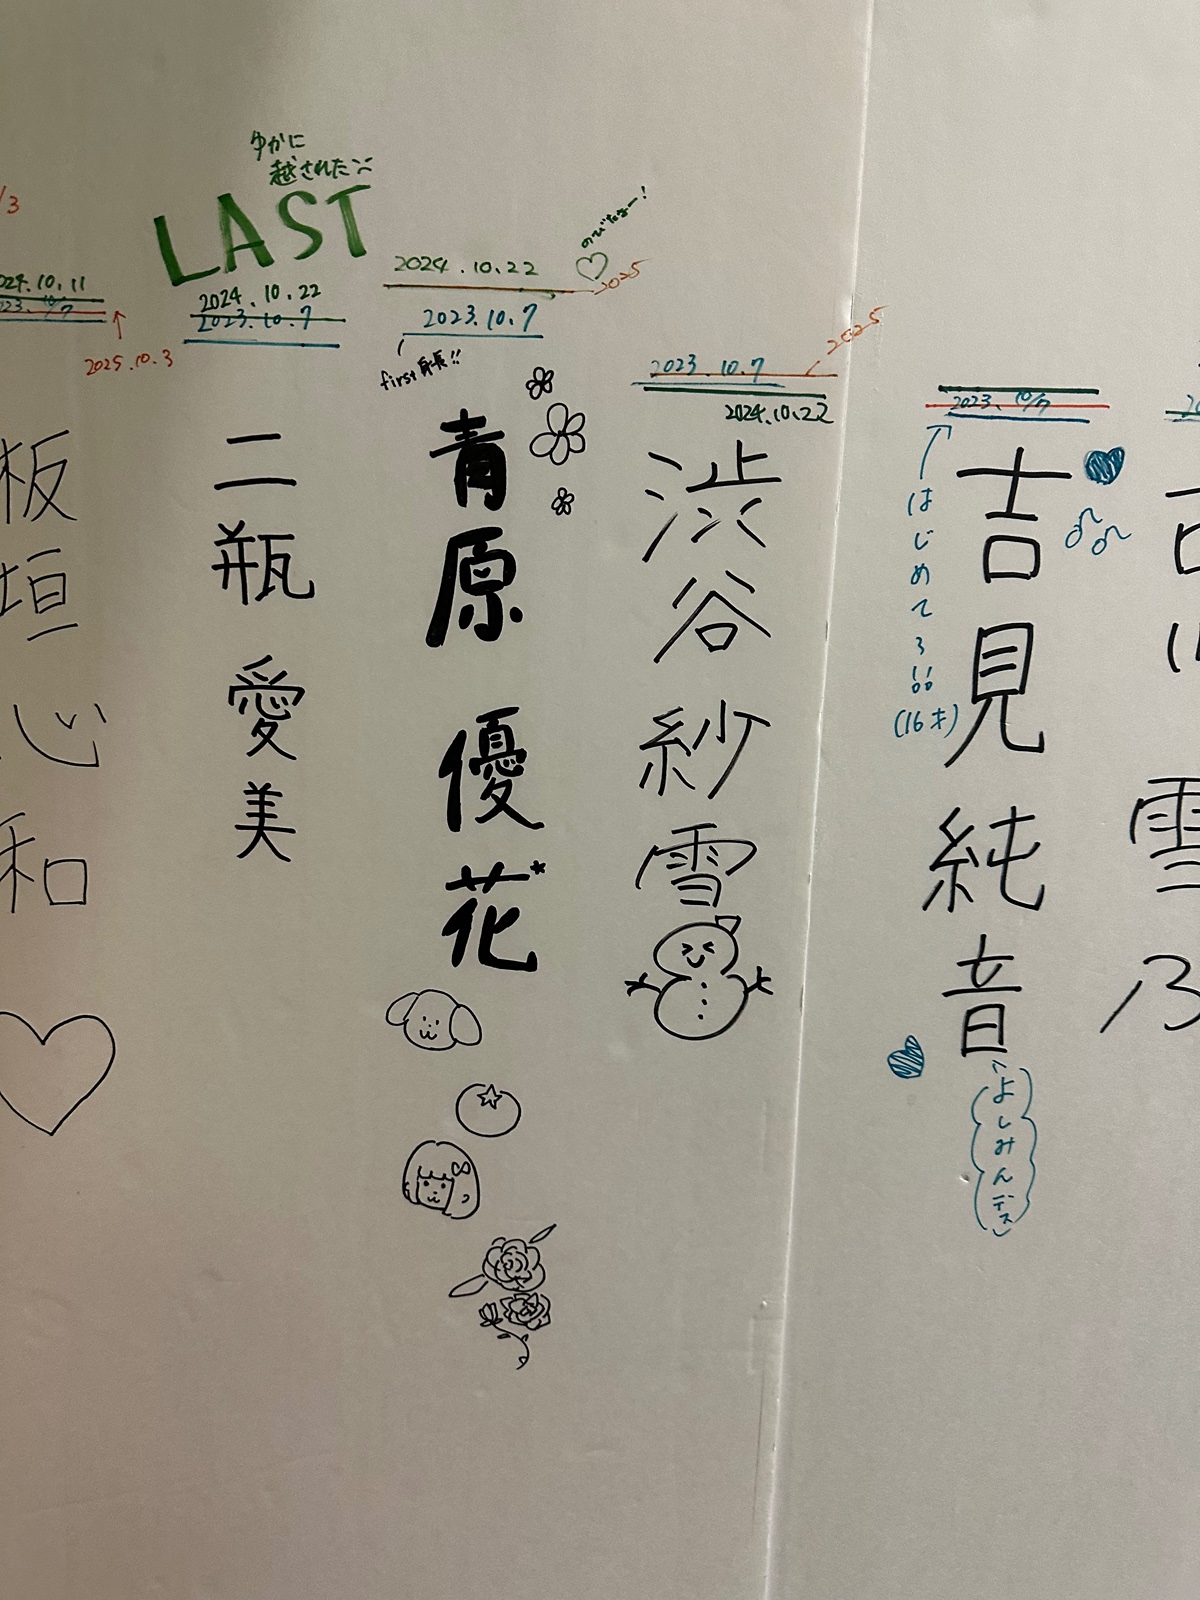 /3
024.10.11
023.10/7
2025.10.3
板垣心和
ゆかに
越された
LAST
2024.10.22
2023.10.7
二瓶愛美
2024.10.22
のびたなー!
2025
2023.10.7
first身長!!
青原優花
2023.10.7
2025
2024.10.22
渋谷紗雪
2023.10/7
はじめてろ!!
(16才)
吉見純音
よしみんデス
雪乃